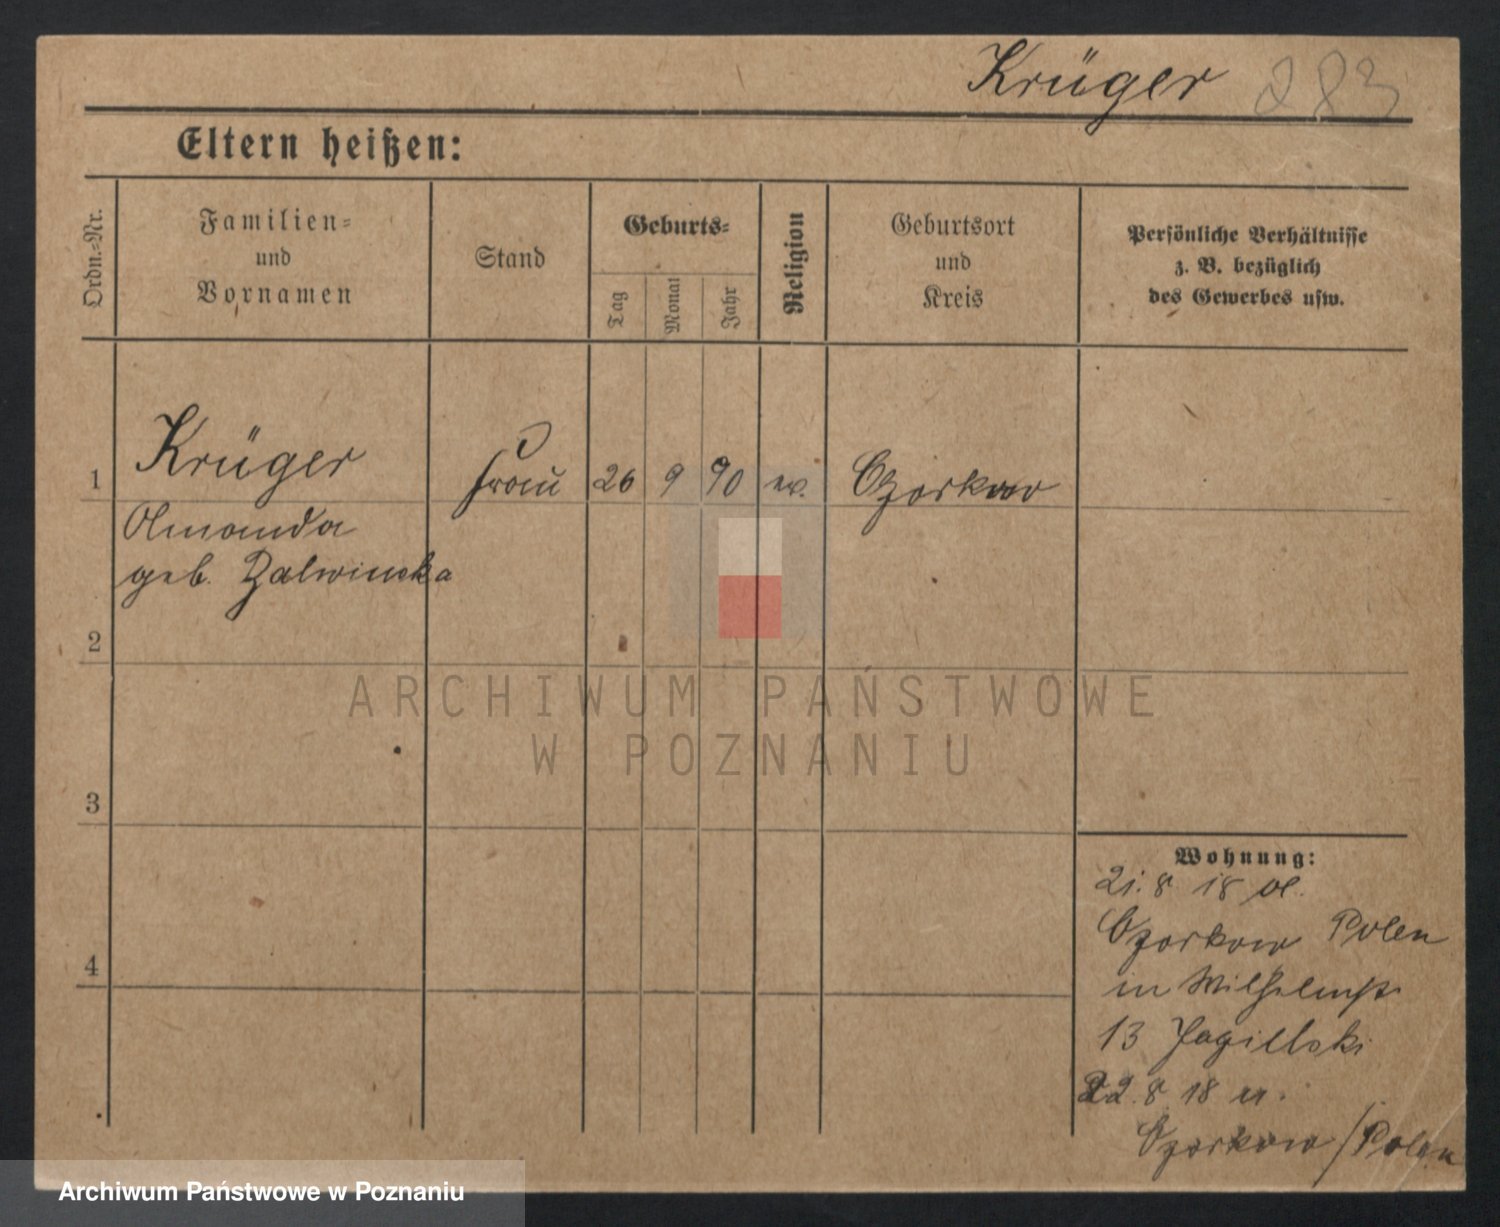 Krüger 283
Eltern heißen:
Ordn.-Nr.
Familien-
und
Vornamen
Stand
Geburts-
Tag
Monat
Jahr
Religion
Geburtsort
und
Kreis
Persönliche Verhältnisse
z. B. bezüglich
des Gewerbes usw.
1 Krüger Frau 26 9 90 ev. Ozorkow
Amanda
geb. Zalwinska
2
ARCHIWUM PAŃSTWOWE
W POZNANIU
3
Wohnung:
21. 8 18 a.
Ozorkow Polen
4
in Wilhelmst.
13 Jagielski
22. 8 18 n.
Ozorkow / Polen
Archiwum Państwowe w Poznaniu